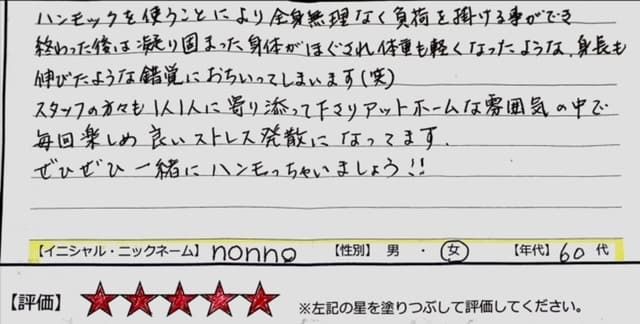 ハンモックを使うことにより全身無理なく負荷を掛ける事ができ
終わった後は凝り固まった身体がほぐされ体重も軽くなったような、身長も
伸びたような錯覚におちいってしまいます(笑)
スタッフの方々も1人1人に寄り添って下さりアットホームな雰囲気の中で
毎回楽しめ良いストレス発散になってます.
ぜひぜひ一緒にハンモっちゃいましょう!!
【イニシャル・ニックネーム】 nonno 【性別】 男 ・ 女 【年代】 60 代
【評価】 ★★★★★ ※左記の星を塗りつぶして評価してください。